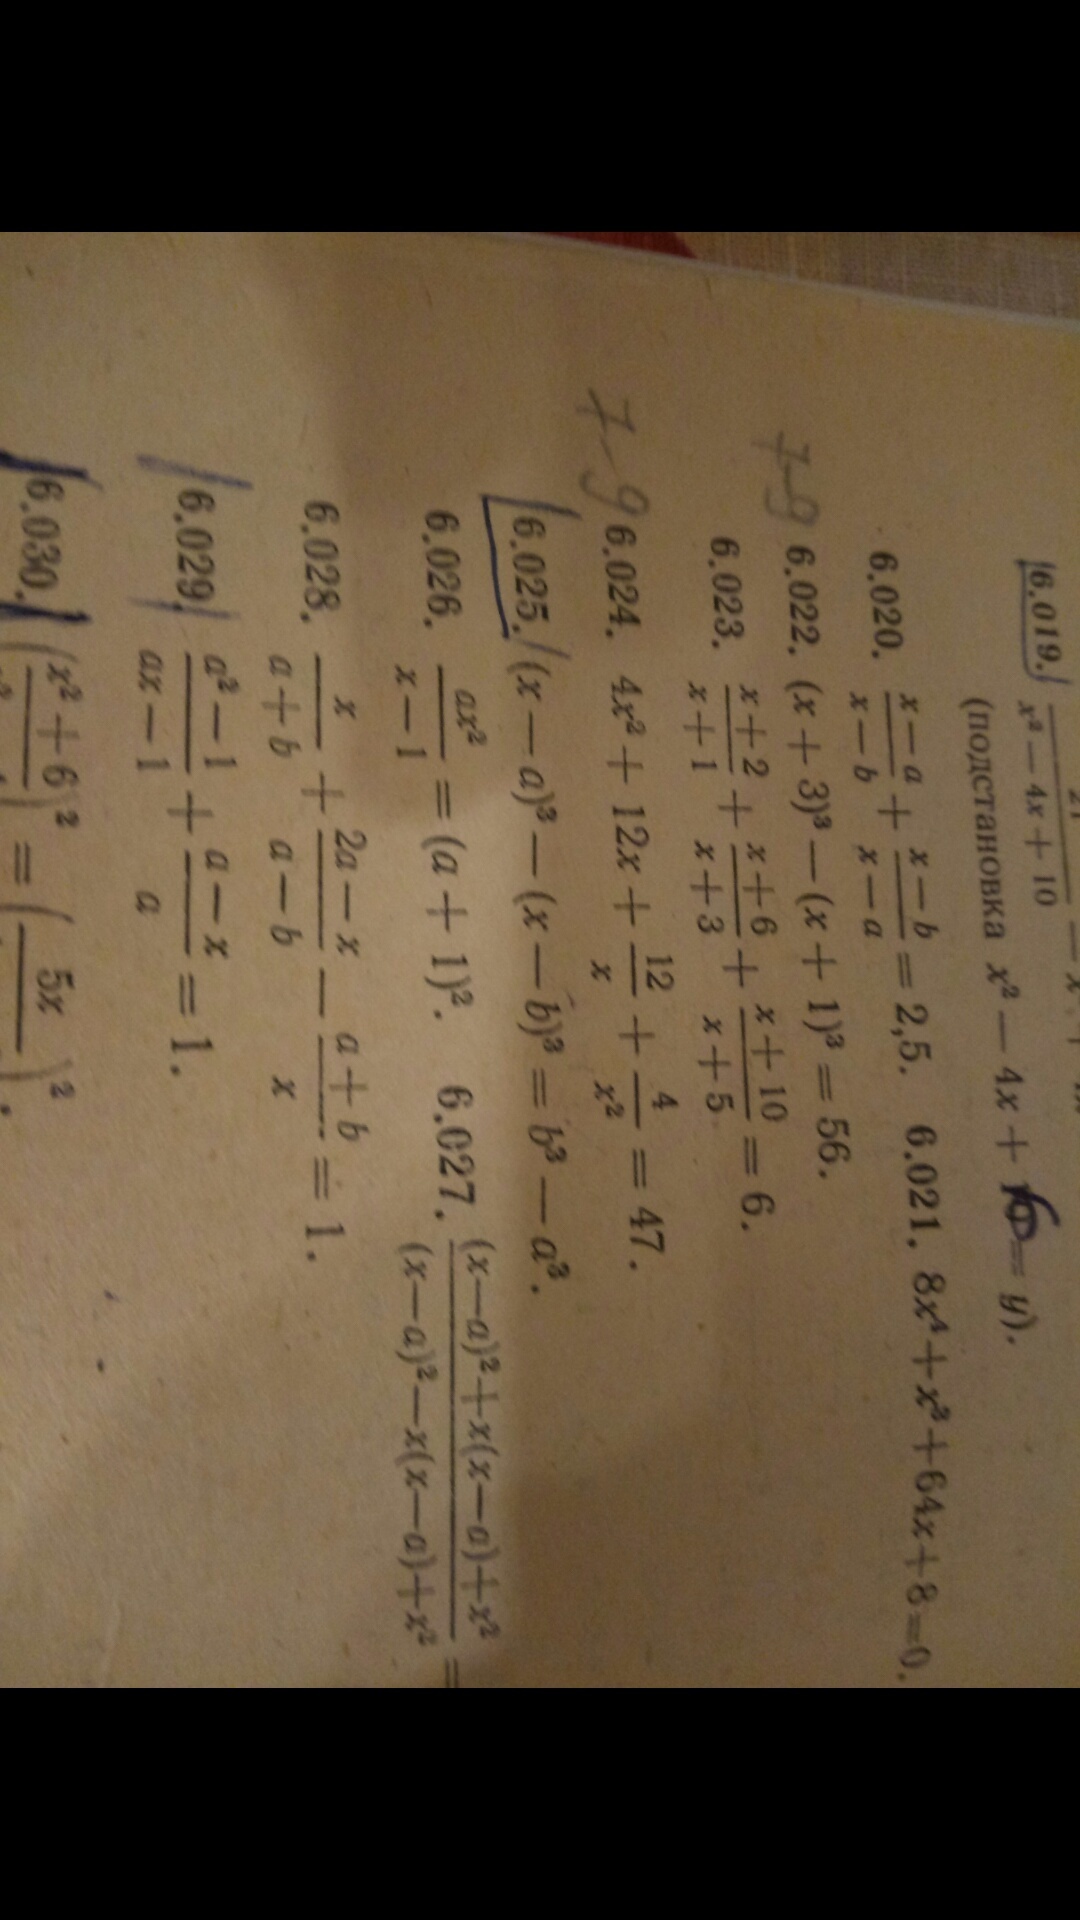 6.019. x² — 4x + 10
(подстановка x² — 4x + 6 = y).
6.020. (x — a)/(x — b) + (x — b)/(x — a) = 2,5. 6.021. 8x⁴ + x³ + 64x + 8 = 0.
7-9 6.022. (x + 3)³ — (x + 1)³ = 56.
6.023. (x + 2)/(x + 1) + (x + 6)/(x + 3) + (x + 10)/(x + 5) = 6.
7-9 6.024. 4x² + 12x + 12/x + 4/x² = 47.
6.025. (x — a)³ — (x — b)³ = b³ — a³.
6.026. ax²/(x — 1) = (a + 1)². 6.027. ((x — a)² + x(x — a) + x²)/((x — a)² — x(x — a) + x²) =
6.028. x/(a + b) + (2a — x)/(a — b) — (a + b)/x = 1.
6.029. (a² — 1)/(ax — 1) + (a — x)/a = 1.
6.030. (x² + 6)² = (5x)².